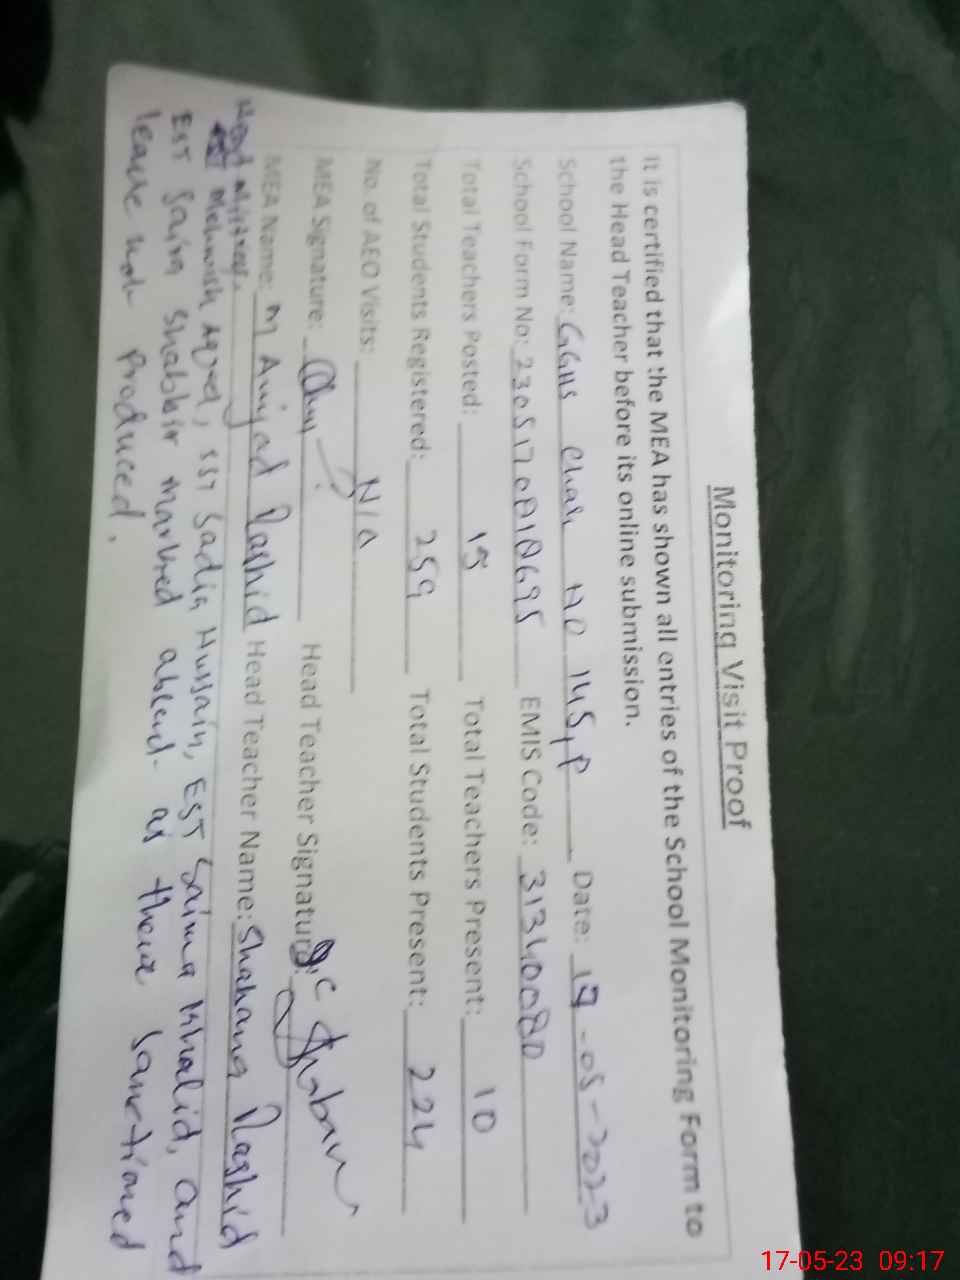 Monitoring Visit Proof
It is certified that the MEA has shown all entries of the School Monitoring Form to
the Head Teacher before its online submission.
School Name: GGHS Chak No 145,P Date: 17-05-2023
School Form No: EMIS Code: 31340080
Total Teachers Posted: 15 Total Teachers Present: 10
Total Students Registered: 259 Total Students Present: 224
No. of AEO Visits: N/A
MEA Signature: Head Teacher Signature:
MEA Name: M Amjad Rashid Head Teacher Name: Shahana Rashid
Head
Mehwish, SST Sadia Hussain, EST Saima Khalid, and
EST Saira Shabbir marked absent as their sanctioned
leave not produced.
17-05-23 09:17